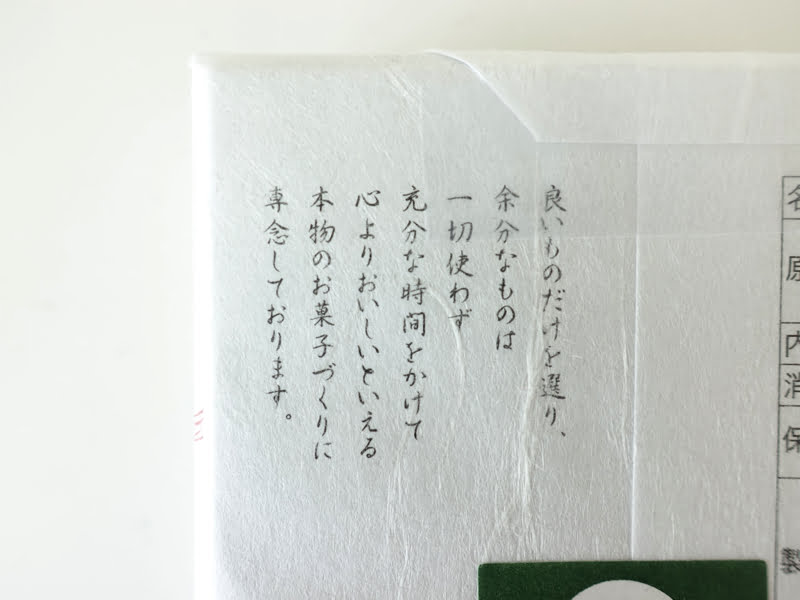 良いものだけを選り、
余分なものは
一切使わず
充分な時間をかけて
心よりおいしいといえる
本物のお菓子づくりに
専念しております。
名
原
内
消
保
製